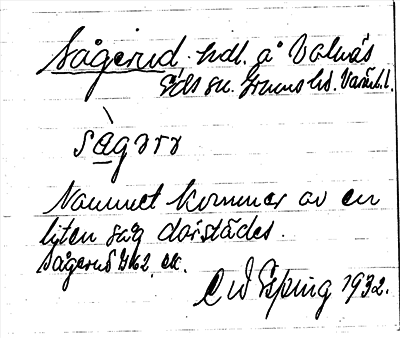 Sågerud, hdl. å Valnäs
Eds sn. Grums hd. Värml. l.
sàgɤrɤ
Namnet kommer av en
liten såg därstädes.
Sågerud 1/62 ek.
C W Esping 1932.